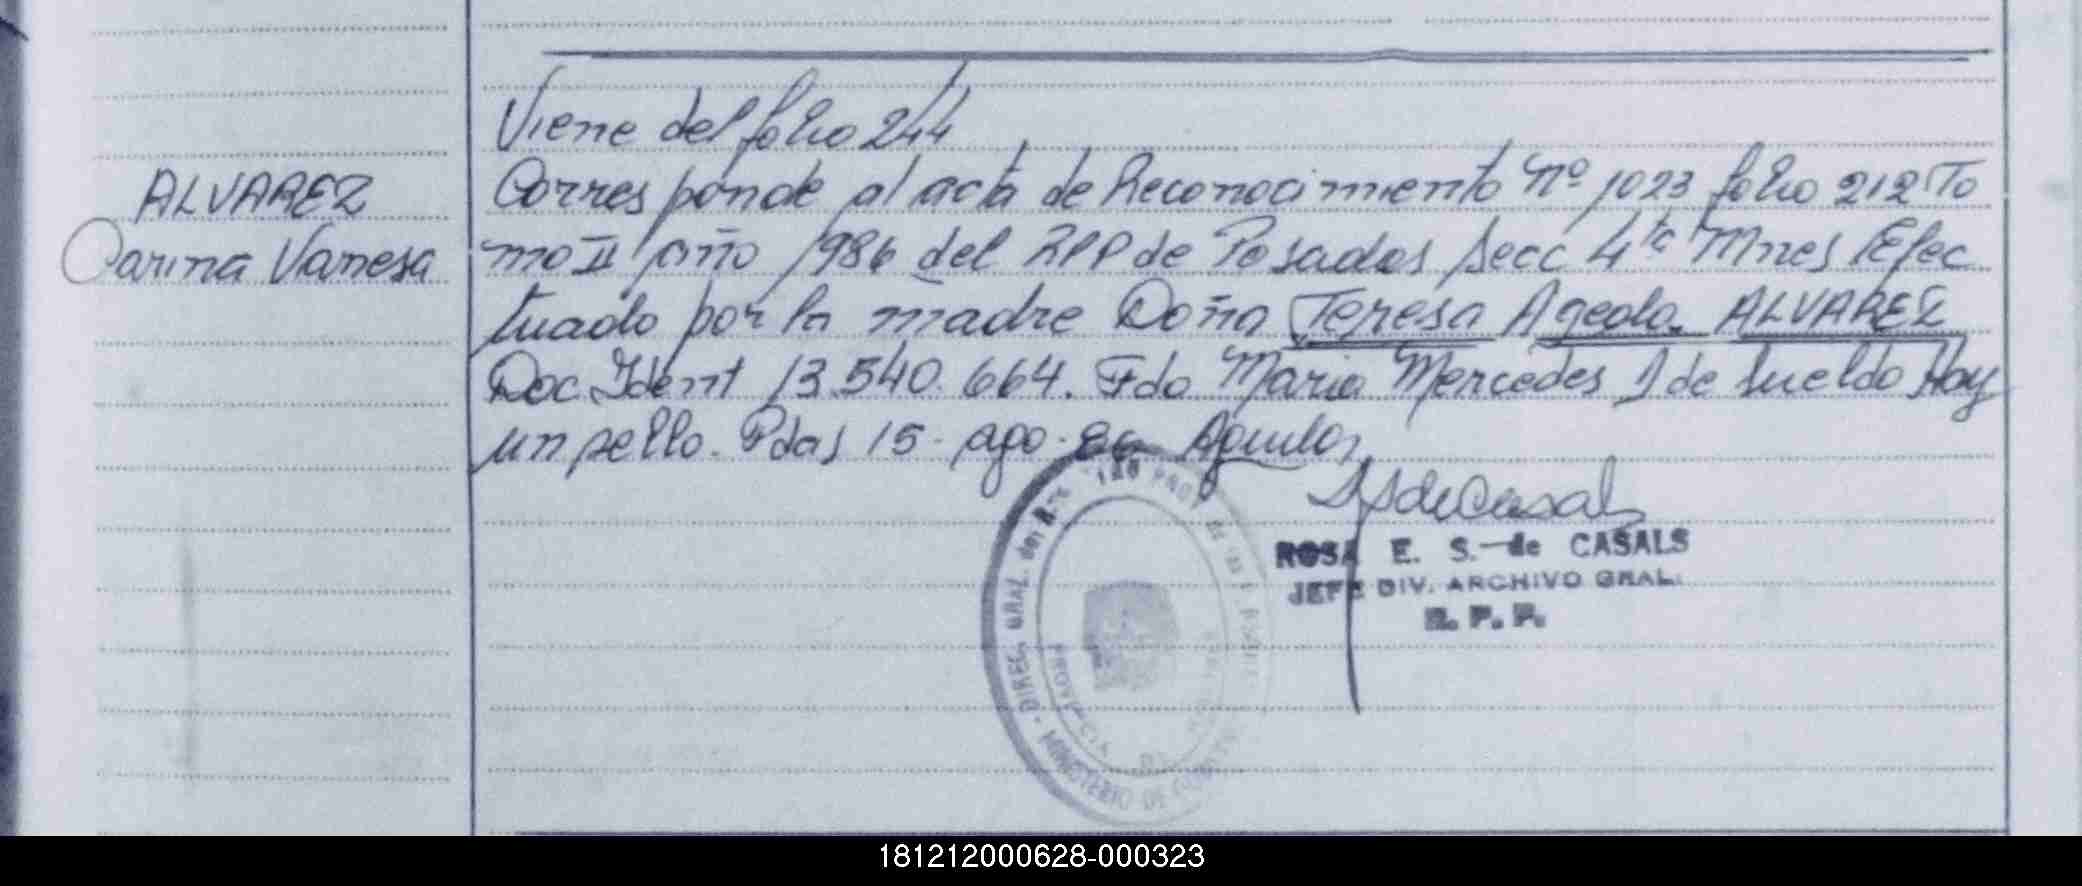 Viene del folio 244
ALVAREZ
Carina Vanesa
Corresponde al acta de Reconocimiento Nº 1023 folio 212 To
mo II año 1986 del RPP de Posadas Secc 4ta Mnes Efec
tuado por la madre Doña Teresa Ageda ALVAREZ
Doc Ident 13.540.664. Fdo Maria Mercedes J de Sueldo Hay
un sello. Pdas 15. ago. 86
ROSA E. S. de CASALS
JEFE DIV. ARCHIVO GRAL.
R. P. P.
DIREC. GRAL. del
MINISTERIO DE
PROVINCIA DE
181212000628-000323